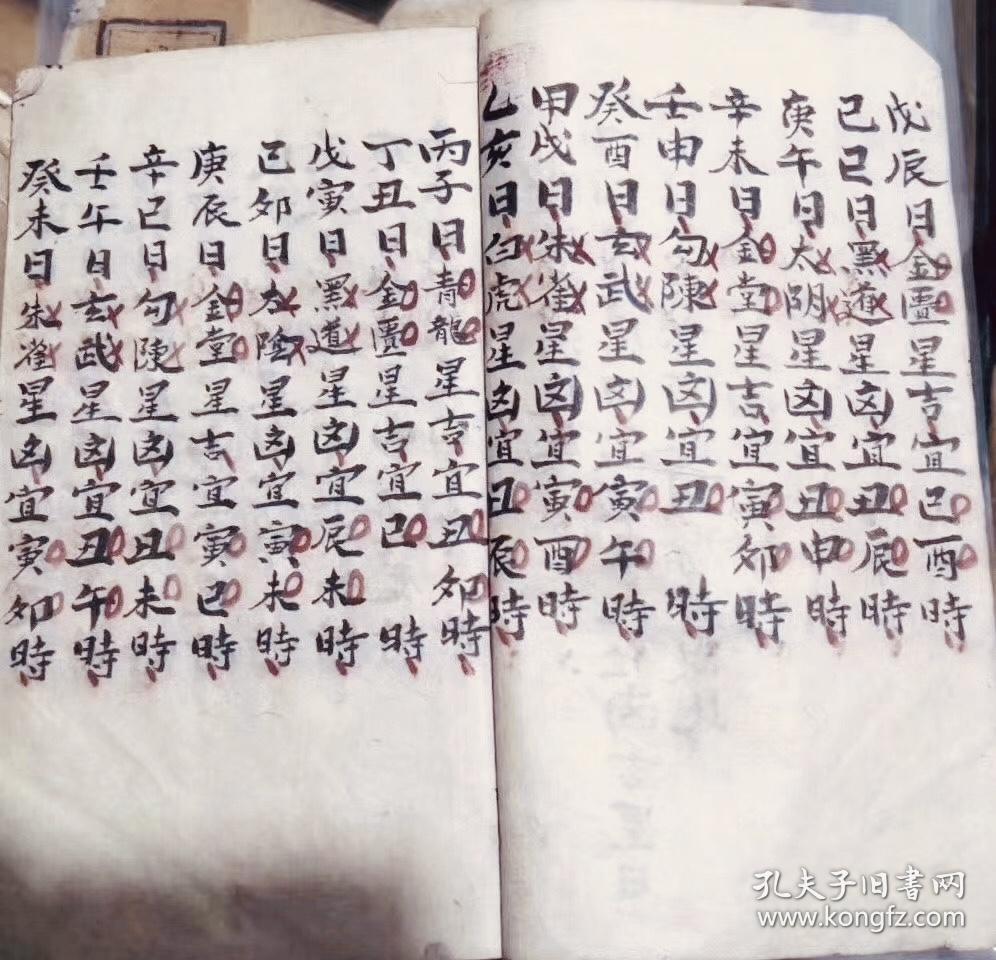 戊辰日金匱星吉宜巳酉時
己巳日黑道星凶宜丑辰時
庚午日太阴星凶宜丑申時
辛未日金堂星吉宜寅卯時
壬申日勾陳星凶宜丑時
癸酉日玄武星凶宜寅午時
甲戌日朱雀星凶宜寅酉時
乙亥日白虎星凶宜丑辰時
丙子日青龍星吉宜丑卯時
丁丑日金匱星吉宜巳時
戊寅日黑道星凶宜辰未時
己卯日太陰星凶宜寅未時
庚辰日金堂星吉宜寅巳時
辛巳日勾陳星凶宜丑未時
壬午日玄武星凶宜丑午時
癸未日朱雀星凶宜寅卯時
孔夫子旧書网
www.kongfz.com